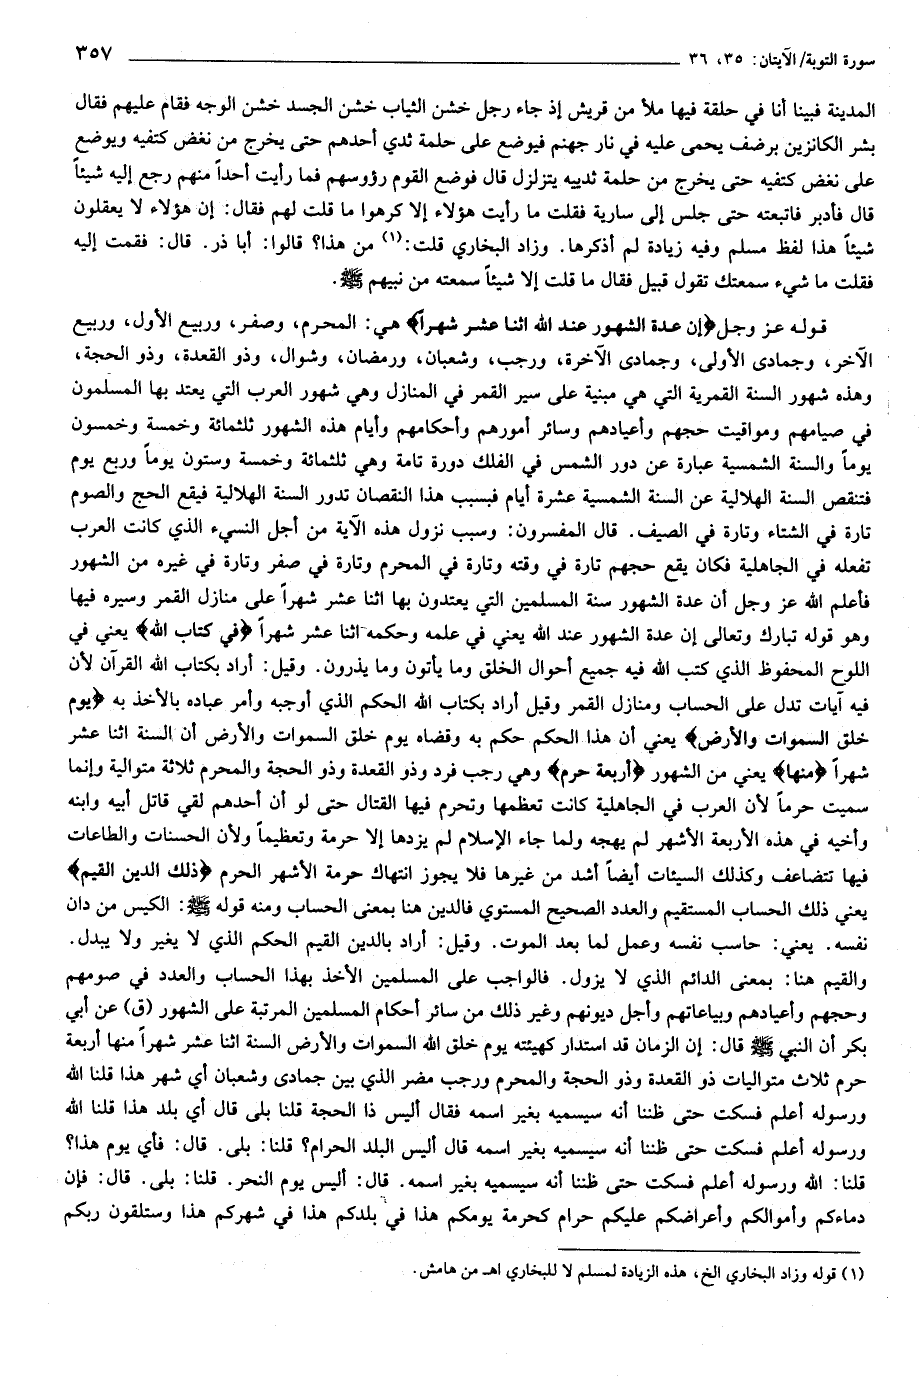 سورة التوبة/ الآيتان: ٣٥، ٣٦ ٣٥٧
المدينة فبينا أنا في حلقة فيها ملأ من قريش إذ جاء رجل خشن الثياب خشن الجسد خشن الوجه فقام عليهم فقال
بشر الكانزين برضف يحمى عليه في نار جهنم فيوضع على حلمة ثدي أحدهم حتى يخرج من نغض كتفيه ويوضع
على نغض كتفيه حتى يخرج من حلمة ثدييه يتزلزل قال فوضع القوم رؤوسهم فما رأيت أحداً منهم رجع إليه شيئاً
قال فأدبر فاتبعته حتى جلس إلى سارية فقلت ما رأيت هؤلاء إلا كرهوا ما قلت لهم فقال: إن هؤلاء لا يعقلون
شيئاً هذا لفظ مسلم وفيه زيادة لم أذكرها. وزاد البخاري قلت:(١) من هذا؟ قالوا: أبا ذر. قال: فقمت إليه
فقلت ما شيء سمعتك تقول قبيل فقال ما قلت إلا شيئاً سمعته من نبيهم ﷺ.
قوله عز وجل ﴿إن عدة الشهور عند الله اثنا عشر شهراً﴾ هي: المحرم، وصفر، وربيع الأول، وربيع
الآخر، وجمادى الأولى، وجمادى الآخرة، ورجب، وشعبان، ورمضان، وشوال، وذو القعدة، وذو الحجة،
وهذه شهور السنة القمرية التي هي مبنية على سير القمر في المنازل وهي شهور العرب التي يعتد بها المسلمون
في صيامهم ومواقيت حجهم وأعيادهم وسائر أمورهم وأحكامهم وأيام هذه الشهور ثلثمائة وخمسة وخمسون
يوماً والسنة الشمسية عبارة عن دور الشمس في الفلك دورة تامة وهي ثلثمائة وخمسة وستون يوماً وربع يوم
فتنقص السنة الهلالية عن السنة الشمسية عشرة أيام فبسبب هذا النقصان تدور السنة الهلالية فيقع الحج والصوم
تارة في الشتاء وتارة في الصيف. قال المفسرون: وسبب نزول هذه الآية من أجل النسيء الذي كانت العرب
تفعله في الجاهلية فكان يقع حجهم تارة في وقته وتارة في المحرم وتارة في صفر وتارة في غيره من الشهور
فأعلم الله عز وجل أن عدة الشهور سنة المسلمين التي يعتدون بها اثنا عشر شهراً على منازل القمر وسيره فيها
وهو قوله تبارك وتعالى إن عدة الشهور عند الله يعني في علمه وحكمه اثنا عشر شهراً ﴿في كتاب الله﴾ يعني في
اللوح المحفوظ الذي كتب الله فيه جميع أحوال الخلق وما يأتون وما يذرون. وقيل: أراد بكتاب الله القرآن لأن
فيه آيات تدل على الحساب ومنازل القمر وقيل أراد بكتاب الله الحكم الذي أوجبه وأمر عباده بالأخذ به ﴿يوم
خلق السموات والأرض﴾ يعني أن هذا الحكم حكم به وقضاه يوم خلق السموات والأرض أن السنة اثنا عشر
شهراً ﴿منها﴾ يعني من الشهور ﴿أربعة حرم﴾ وهي رجب فرد وذو القعدة وذو الحجة والمحرم ثلاثة متوالية وإنما
سميت حرماً لأن العرب في الجاهلية كانت تعظمها وتحرم فيها القتال حتى لو أن أحدهم لقي قاتل أبيه وابنه
وأخيه في هذه الأربعة الأشهر لم يهجه ولما جاء الإسلام لم يزدها إلا حرمة وتعظيماً ولأن الحسنات والطاعات
فيها تتضاعف وكذلك السيئات أيضاً أشد من غيرها فلا يجوز انتهاك حرمة الأشهر الحرم ﴿ذلك الدين القيم﴾
يعني ذلك الحساب المستقيم والعدد الصحيح المستوي فالدين هنا بمعنى الحساب ومنه قوله ﷺ: الكيس من دان
نفسه. يعني: حاسب نفسه وعمل لما بعد الموت. وقيل: أراد بالدين القيم الحكم الذي لا يغير ولا يبدل.
والقيم هنا: بمعنى الدائم الذي لا يزول. فالواجب على المسلمين الأخذ بهذا الحساب والعدد في صومهم
وحجهم وأعيادهم وبياعاتهم وأجل ديونهم وغير ذلك من سائر أحكام المسلمين المرتبة على الشهور (ق) عن أبي
بكر أن النبي ﷺ قال: إن الزمان قد استدار كهيئته يوم خلق الله السموات والأرض السنة اثنا عشر شهراً منها أربعة
حرم ثلاث متواليات ذو القعدة وذو الحجة والمحرم ورجب مضر الذي بين جمادى وشعبان أي شهر هذا قلنا الله
ورسوله أعلم فسكت حتى ظننا أنه سيسميه بغير اسمه فقال أليس ذا الحجة قلنا بلى قال أي بلد هذا قلنا الله
ورسوله أعلم فسكت حتى ظننا أنه سيسميه بغير اسمه قال أليس البلد الحرام؟ قلنا: بلى. قال: فأي يوم هذا؟
قلنا: الله ورسوله أعلم فسكت حتى ظننا أنه سيسميه بغير اسمه. قال: أليس يوم النحر. قلنا: بلى. قال: فإن
دماءكم وأموالكم وأعراضكم عليكم حرام كحرمة يومكم هذا في بلدكم هذا في شهركم هذا وستلقون ربكم
(١) قوله وزاد البخاري الخ، هذه الزيادة لمسلم لا للبخاري اهـ من هامش.